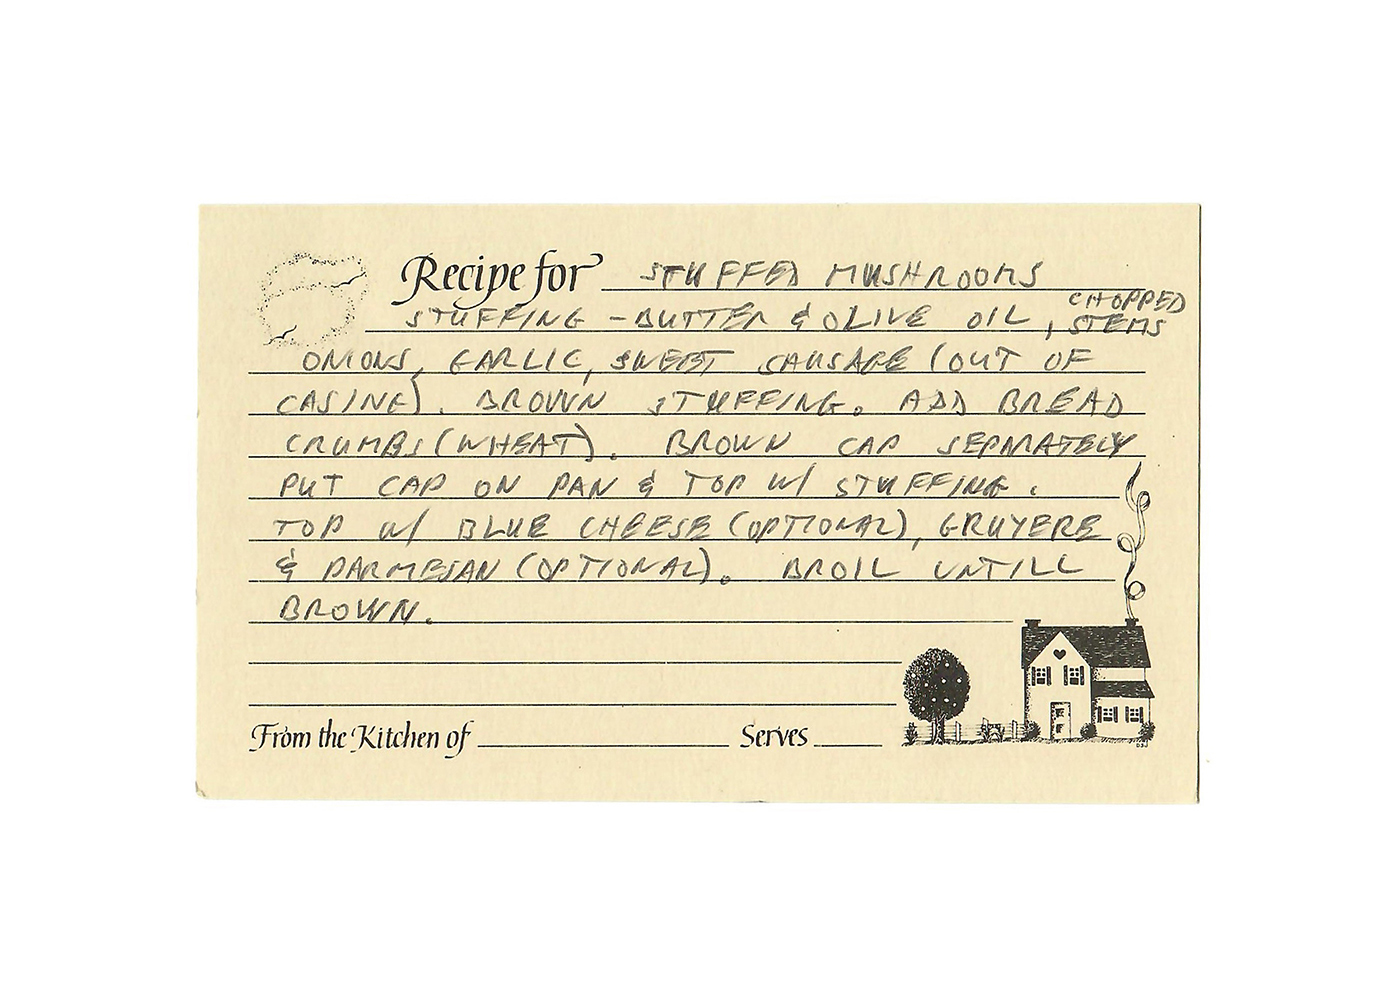 Recipe for STUFFED MUSHROOMS
STUFFING - BUTTER & OLIVE OIL, CHOPPED STEMS
ONIONS, GARLIC, SWEET SAUSAGE (OUT OF
CASING). BROWN STUFFING. ADD BREAD
CRUMBS (WHEAT). BROWN CAP SEPARATELY
PUT CAP ON PAN & TOP W/ STUFFING.
TOP W/ BLUE CHEESE (OPTIONAL), GRUYERE
& PARMESAN (OPTIONAL). BROIL UNTILL
BROWN.
From the Kitchen of Serves